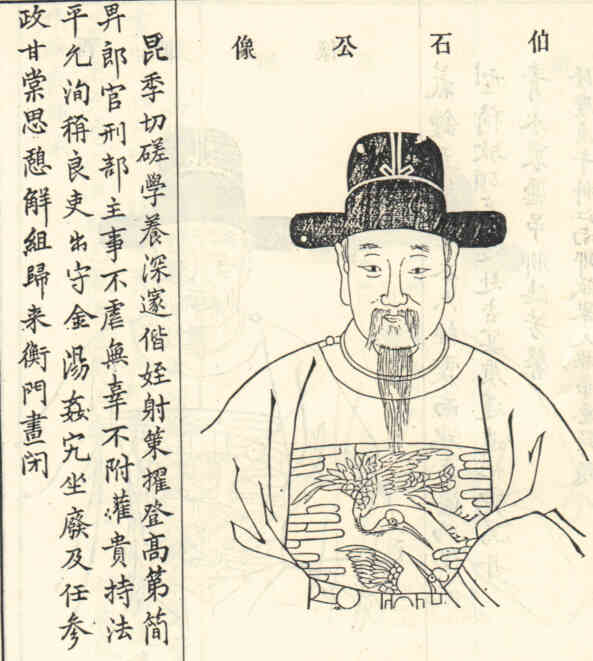 伯石公像
昆季切磋學養深邃偕姪射策擢登高第簡
畀郎官刑部主事不虐無辜不附權貴持法
平允洵稱良吏出守金湯姦宄坐廢及任參
政甘棠思憩解組歸来衡門晝闭